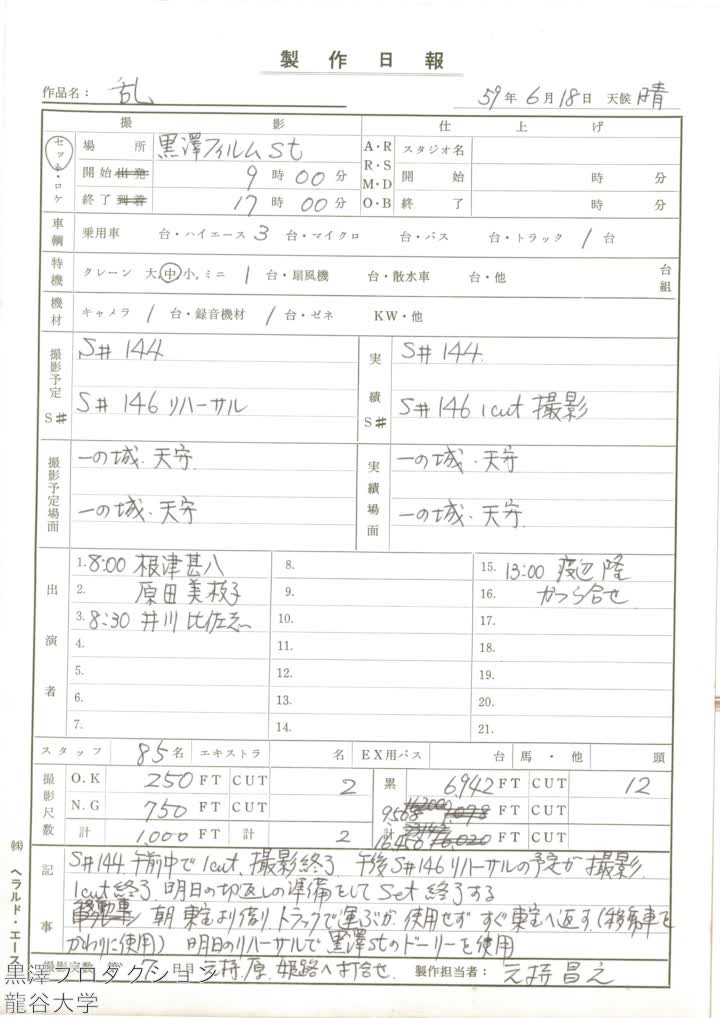 製作日報
作品名： 乱
59年 6月 18日 天候 晴
撮影 仕上げ
セット・ロケ 場所 黒澤フィルムSt A・R R・S M・D O・B スタジオ名
開始 出発 9時00分 開始 時 分
終了 到着 17時00分 終了 時 分
車輌 乗用車 台・ハイエース 3 台・マイクロ 台・バス 台・トラック 1 台
特機 クレーン 大,中,小,ミニ 1 台・扇風機 台・散水車 台・他 台 組
機材 キャメラ 1 台・録音機材 1 台・ゼネ KW・他
撮影予定 S# S# 144 実績 S# S# 144.
S# 146 リハーサル S# 146 1cut 撮影
撮影予定場面 一の城.天守 実績場面 一の城.天守
一の城.天守 一の城.天守
出演者
1. 8:00 根津甚八 8. 15. 13:00 渡辺 隆
2. 原田美枝子 9. 16. かつら合せ
3. 8:30 井川比佐志 10. 17.
4. 11. 18.
5. 12. 19.
6. 13. 20.
7. 14. 21.
スタッフ 85名 エキストラ 名 EX用バス 台 馬・他 頭
撮影尺数 O.K 250 FT CUT 2 累計 6,942 FT CUT 12
N.G 750 FT CUT 9508 FT CUT
計 1,000 FT 計 2 16,450 FT 計
記事 S#144.午前中で1cut.撮影終了.午後S#146リハーサルの予定が撮影.
1cut終了 明日の切返しの準備をしてSet終了する
移動車 朝 東宝より借り.トラックで運ぶが.使用せず すぐ東宝へ返す.(移動車を
かわりに使用) 明日のリハーサルで黒澤stのドーリーを使用
撮影実数 第 7 日目 元持.原.姫路へ打合せ. 製作担当者： 元持昌之
㈱ヘラルド・エース
黒澤プロダクション
龍谷大学